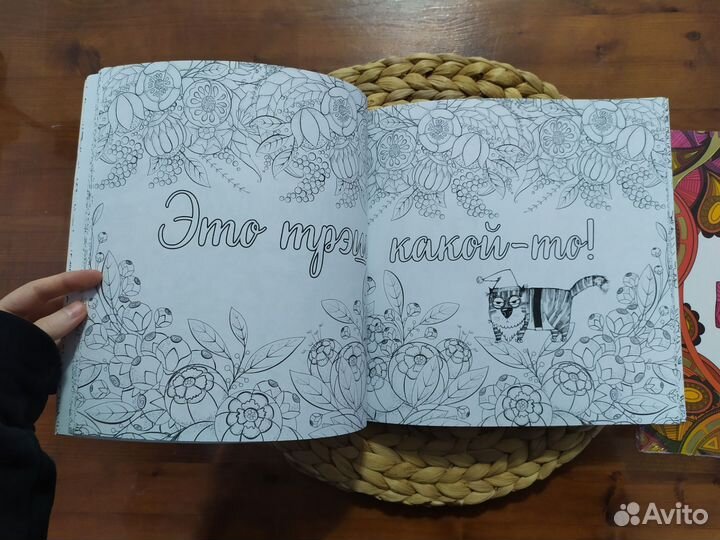 Это трэш какой-то!
Avito